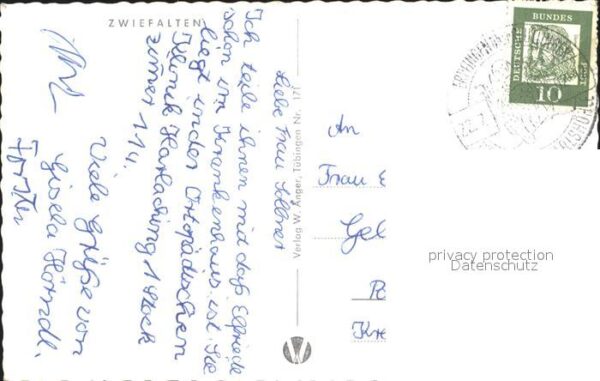 ZWIEFALTEN
Liebe Frau
Ich teile ihnen mit daß Elfriede
schon im Krankenhaus ist. Sie
liegt in der Ortopädischen
Klinik Harlaching 1 Stock
zimer 114.
Viele Grüße von
Gisela Hörndl.
Verlag W. Anger, Tübingen Nr. 171
An
Frau E
Gel
Kre
DEUTSCHE
BUNDES
10
privacy protection
Datenschutz